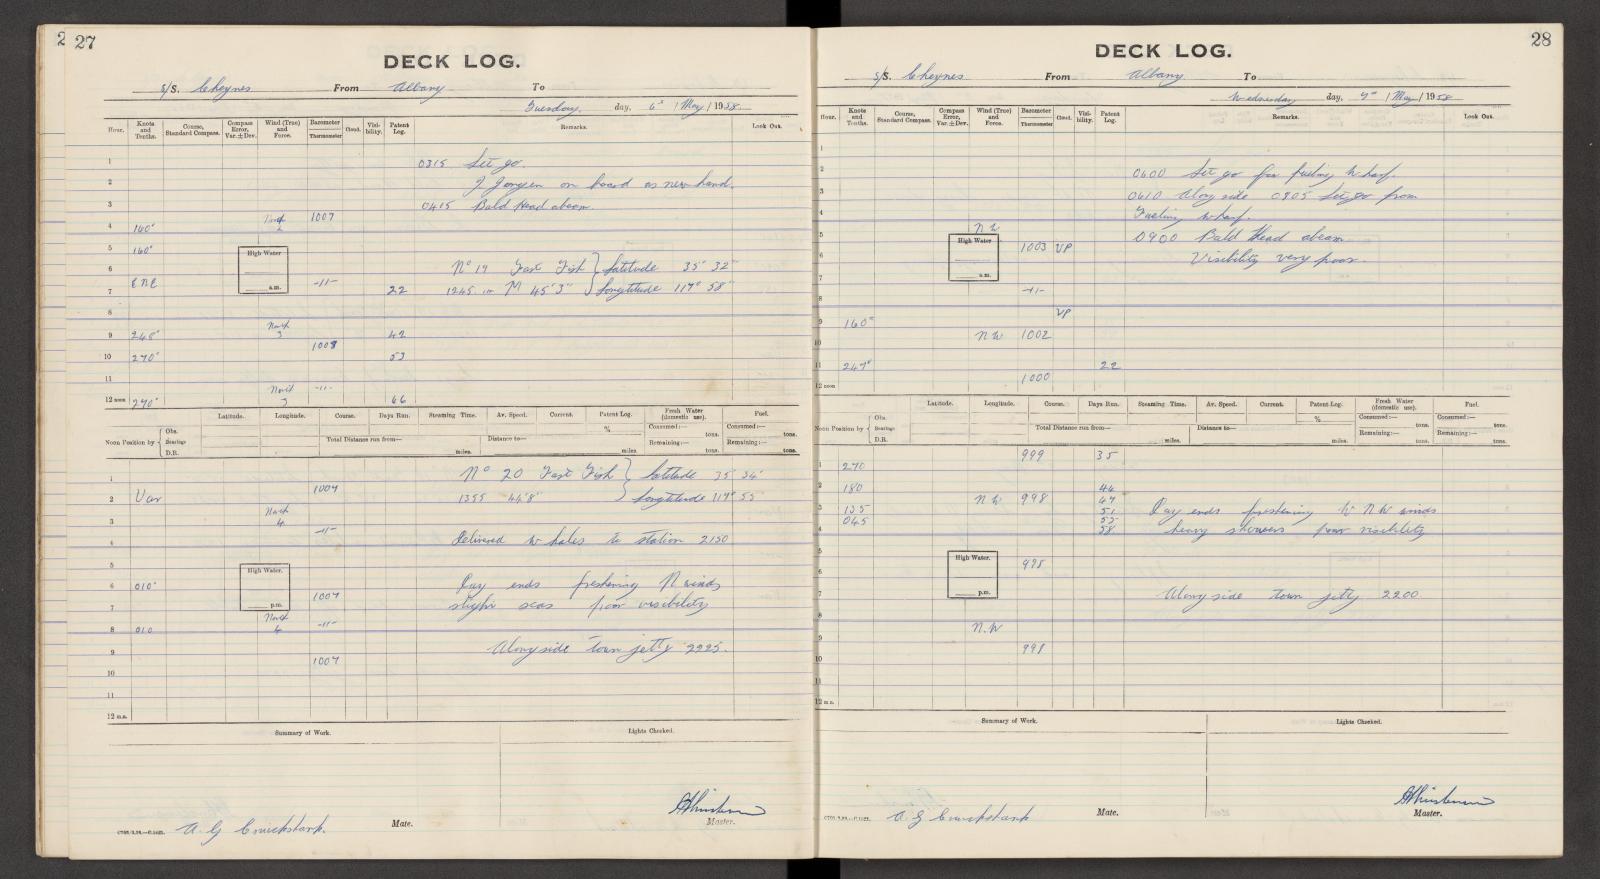 2
27
DECK LOG.
S/S. Cheynes From Albany To
Tuesday, day, 6th / May / 1958
Hour. Knots and Tenths. Course, Standard Compass. Compass Error, Var. ± Dev. Wind (True) and Force. Barometer Thermometer Cloud. Visibility. Patent Log. Remarks. Look Out.
1 0315 Let go.
2 J Jorgsen on board as new hand.
3 0415 Bald Head abeam.
4 140° North 2 1007
5 160°
High Water
a.m.
6 No 19 Fast Fish } Latitude 35° 32"
7 ENE -11- 22 1245 M 45'3" } Longtitude 117° 58"
8
9 245° North 3 42
1008
10 270° 53
11
12 noon 270° North 3 -11- 66
Latitude. Longitude. Course. Days Run. Steaming Time. Av. Speed. Current. Patent Log. Fresh Water (domestic use). Fuel.
Noon Position by { Obs. Bearings D.R. Total Distance run from— miles. Distance to— miles. % Consumed:— tons. Remaining:— tons. Consumed:— tons. Remaining:— tons.
1 No 20 Fast Fish } Latitude 35° 34'
2 Var 1007 1355 44'8" } Longtitude 117° 55'
3 North 4
4 -11- Delivered whales to station 2150
5
High Water.
p.m.
6 010° 1007 Day ends freshening N winds
7 slight seas poor visibility
8 010 North 4 -11-
9 Along side town jetty 2225.
10 1007
11
12 m.n.
Summary of Work. Lights Checked.
A. G Cruickshank. Mate. Master.
28
DECK LOG.
S/S. Cheynes From Albany To
Wednesday day, 7th / May / 1958
Hour. Knots and Tenths. Course, Standard Compass. Compass Error, Var. ± Dev. Wind (True) and Force. Barometer Thermometer Cloud. Visibility. Patent Log. Remarks. Look Out.
1
2 0600 Let go for fueling wharf.
3 0610 Along side 0805 Let go from
4 Fueling wharf.
5 NW 1003 VP 0900 Bald Head abeam
High Water
a.m.
6 Visibility very poor.
7
8 -11-
9 160° VP
10 NW 1002
11 247° 22
12 noon 1000
Latitude. Longitude. Course. Days Run. Steaming Time. Av. Speed. Current. Patent Log. Fresh Water (domestic use). Fuel.
Noon Position by { Obs. Bearings D.R. Total Distance run from— miles. Distance to— miles. % Consumed:— tons. Remaining:— tons. Consumed:— tons. Remaining:— tons.
1 270 999 35
2 180 44
NW 998 47
3 135 51 Day ends freshening W NW winds
4 045 55
58 heavy showers poor visibility
5
High Water.
p.m.
6 998
7 Along side town jetty 2200
8 N.W
9
10 998
11
12 m.n.
Summary of Work. Lights Checked.
A. G Cruickshank Mate. Master.